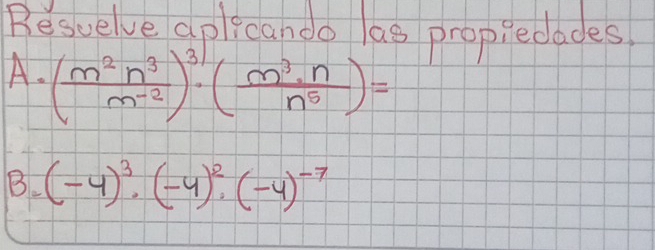 Resuelve aplicando las propiedades.
A. (m² n³ / m⁻²)³ · (m³ . n / n⁵) =
B. (-4)³ . (-4)² . (-4)⁻⁷